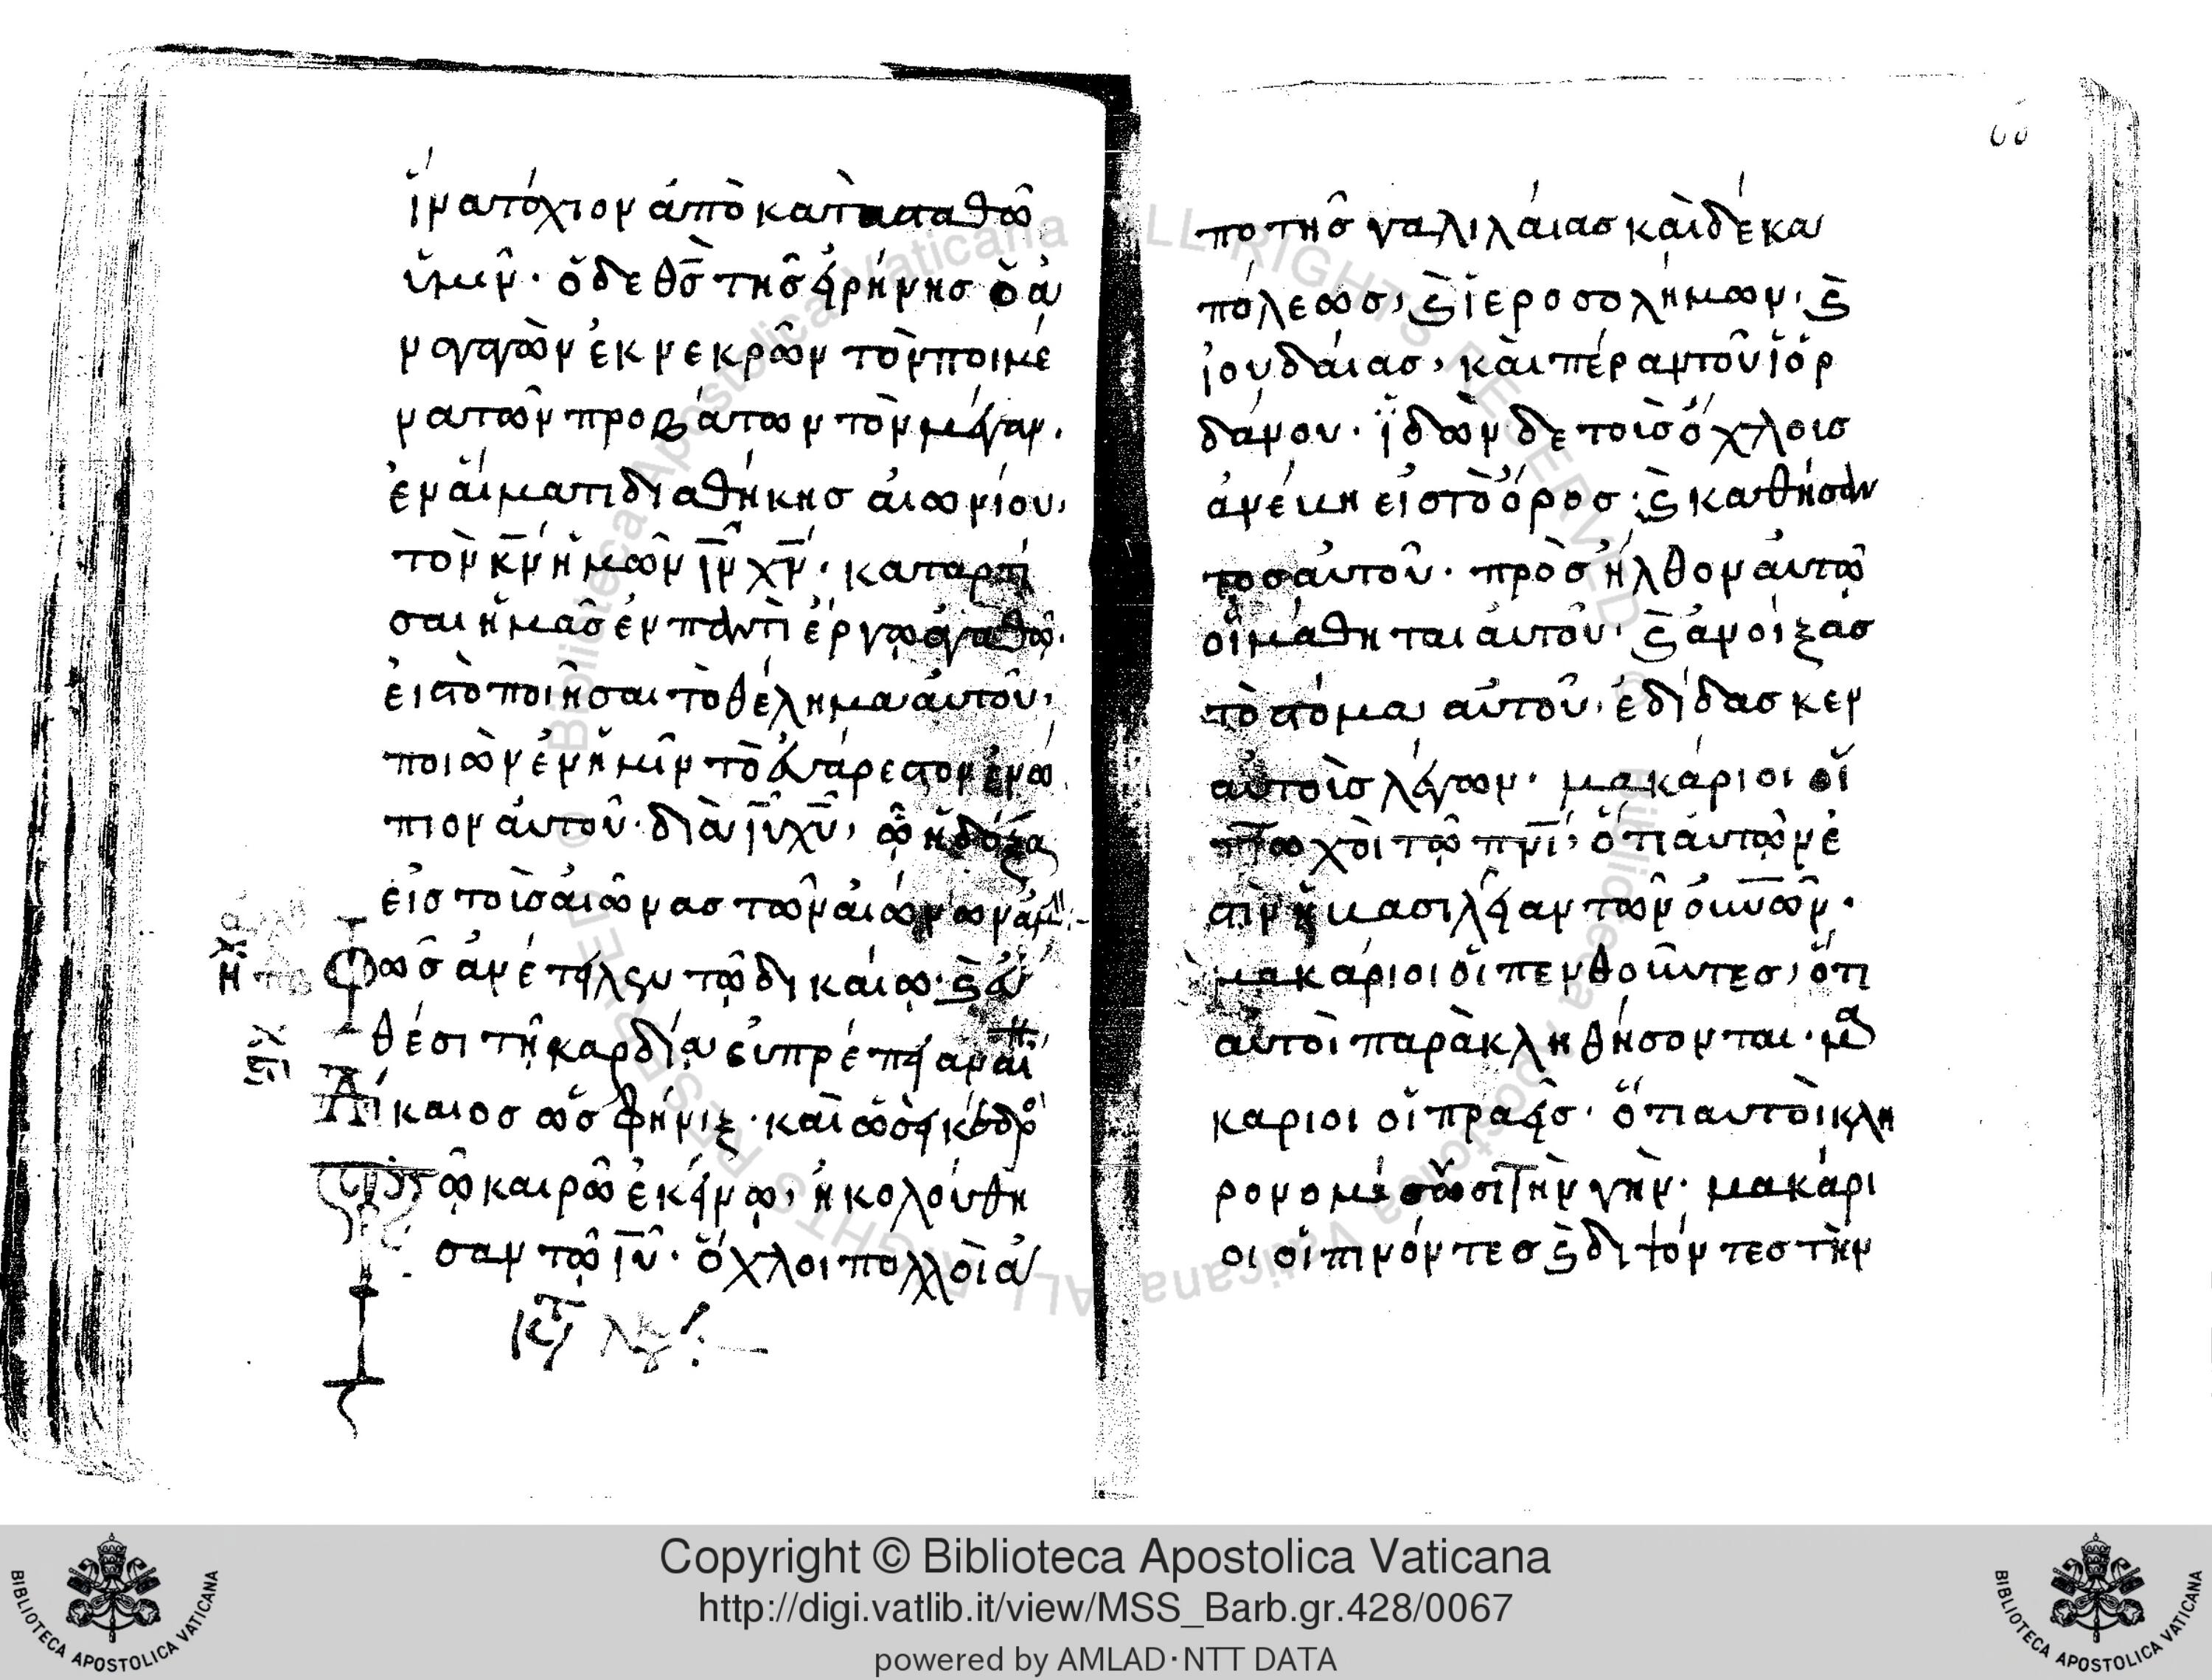 ἵνα τόχιον ἀπὸκατασταθῶ
ὑμῖν· ὁδε θς τῆς εἰρήνης ὁ ἀ
ναγαγὼν ἐκ νεκρῶν τὸν ποιμέ
να τῶν προβάτων τὸν μέγαν.
ἐν αἵματι διαθήκης αἰωνίου,
τὸν κν ἡμῶν ιν χν· καταρτί
σαι ἡμᾶς ἐν παντὶ ἔργω ἀγαθῶ·
εἰς τὸ ποιῆσαι τὸ θέλημα αὐτοῦ,
ποιὼν ἐν ἡμῖν τὸ εὐάρεστον ἐνώ
πιον αὐτοῦ· διὰ ιυ χυ, ὧ ἡ δόξα
εἰς τοὶς αἰῶνας τῶν αἰώνων ἀμ
φῶς ἀνέτειλεν τῶ δικαίω· ϗ εὐ
θέσι τῆ καρδία εὐπρέπεια
Δίκαιος ὡς φήνιξ· καὶ ὡσεὶ κέδρο
τῶ καιρῶ ἐκείνω, ἠκολούθη
σαν τῶ ιυ· ὄχλοι πολλοὶ ἀ
πο τῆς γαλιλαίας καὶ δέκα
πόλεως, ϗ ἱεροσολήμων, ϗ
ἰουδαίας, καὶ πέραν τοῦ ἰόρ
δάνου· ἰδὼν δε τοὶς ὄχλοις
ἀνέβη εἰς τὸ ὄρος· ϗ καθήσαν
τος αὐτοῦ· πρὸσῆλθον αὐτῶ
οἱ μαθηται αὐτοῦ· ϗ ἀνοίξας
τὸ στόμα αὐτοῦ, ἐδίδασκεν
αὐτοὶς λέγων· μακάριοι οἱ
πτωχοὶ τῶ πνι, ὅτι αὐτῶν ἐ
στιν ἡ βασιλείαν τῶν οὐνων·
μακάριοι οἱ πενθοῦντες, ὅτι
αὐτοὶ παρὰκληθήσονται· μα
καριοι οἱ πραεῖς· ὅτι αυτοὶ κλη
ρονομήσωσι τὴν γὴν· μακάρι
οι οἱ πινόντες ϗ διψόντες τὴν
Copyright © Biblioteca Apostolica Vaticana
http://digi.vatlib.it/view/MSS_Barb.gr.428/0067
powered by AMLAD·NTT DATA
BIBLIOTECA APOSTOLICA VATICANA
BIBLIOTECA APOSTOLICA VATICANA